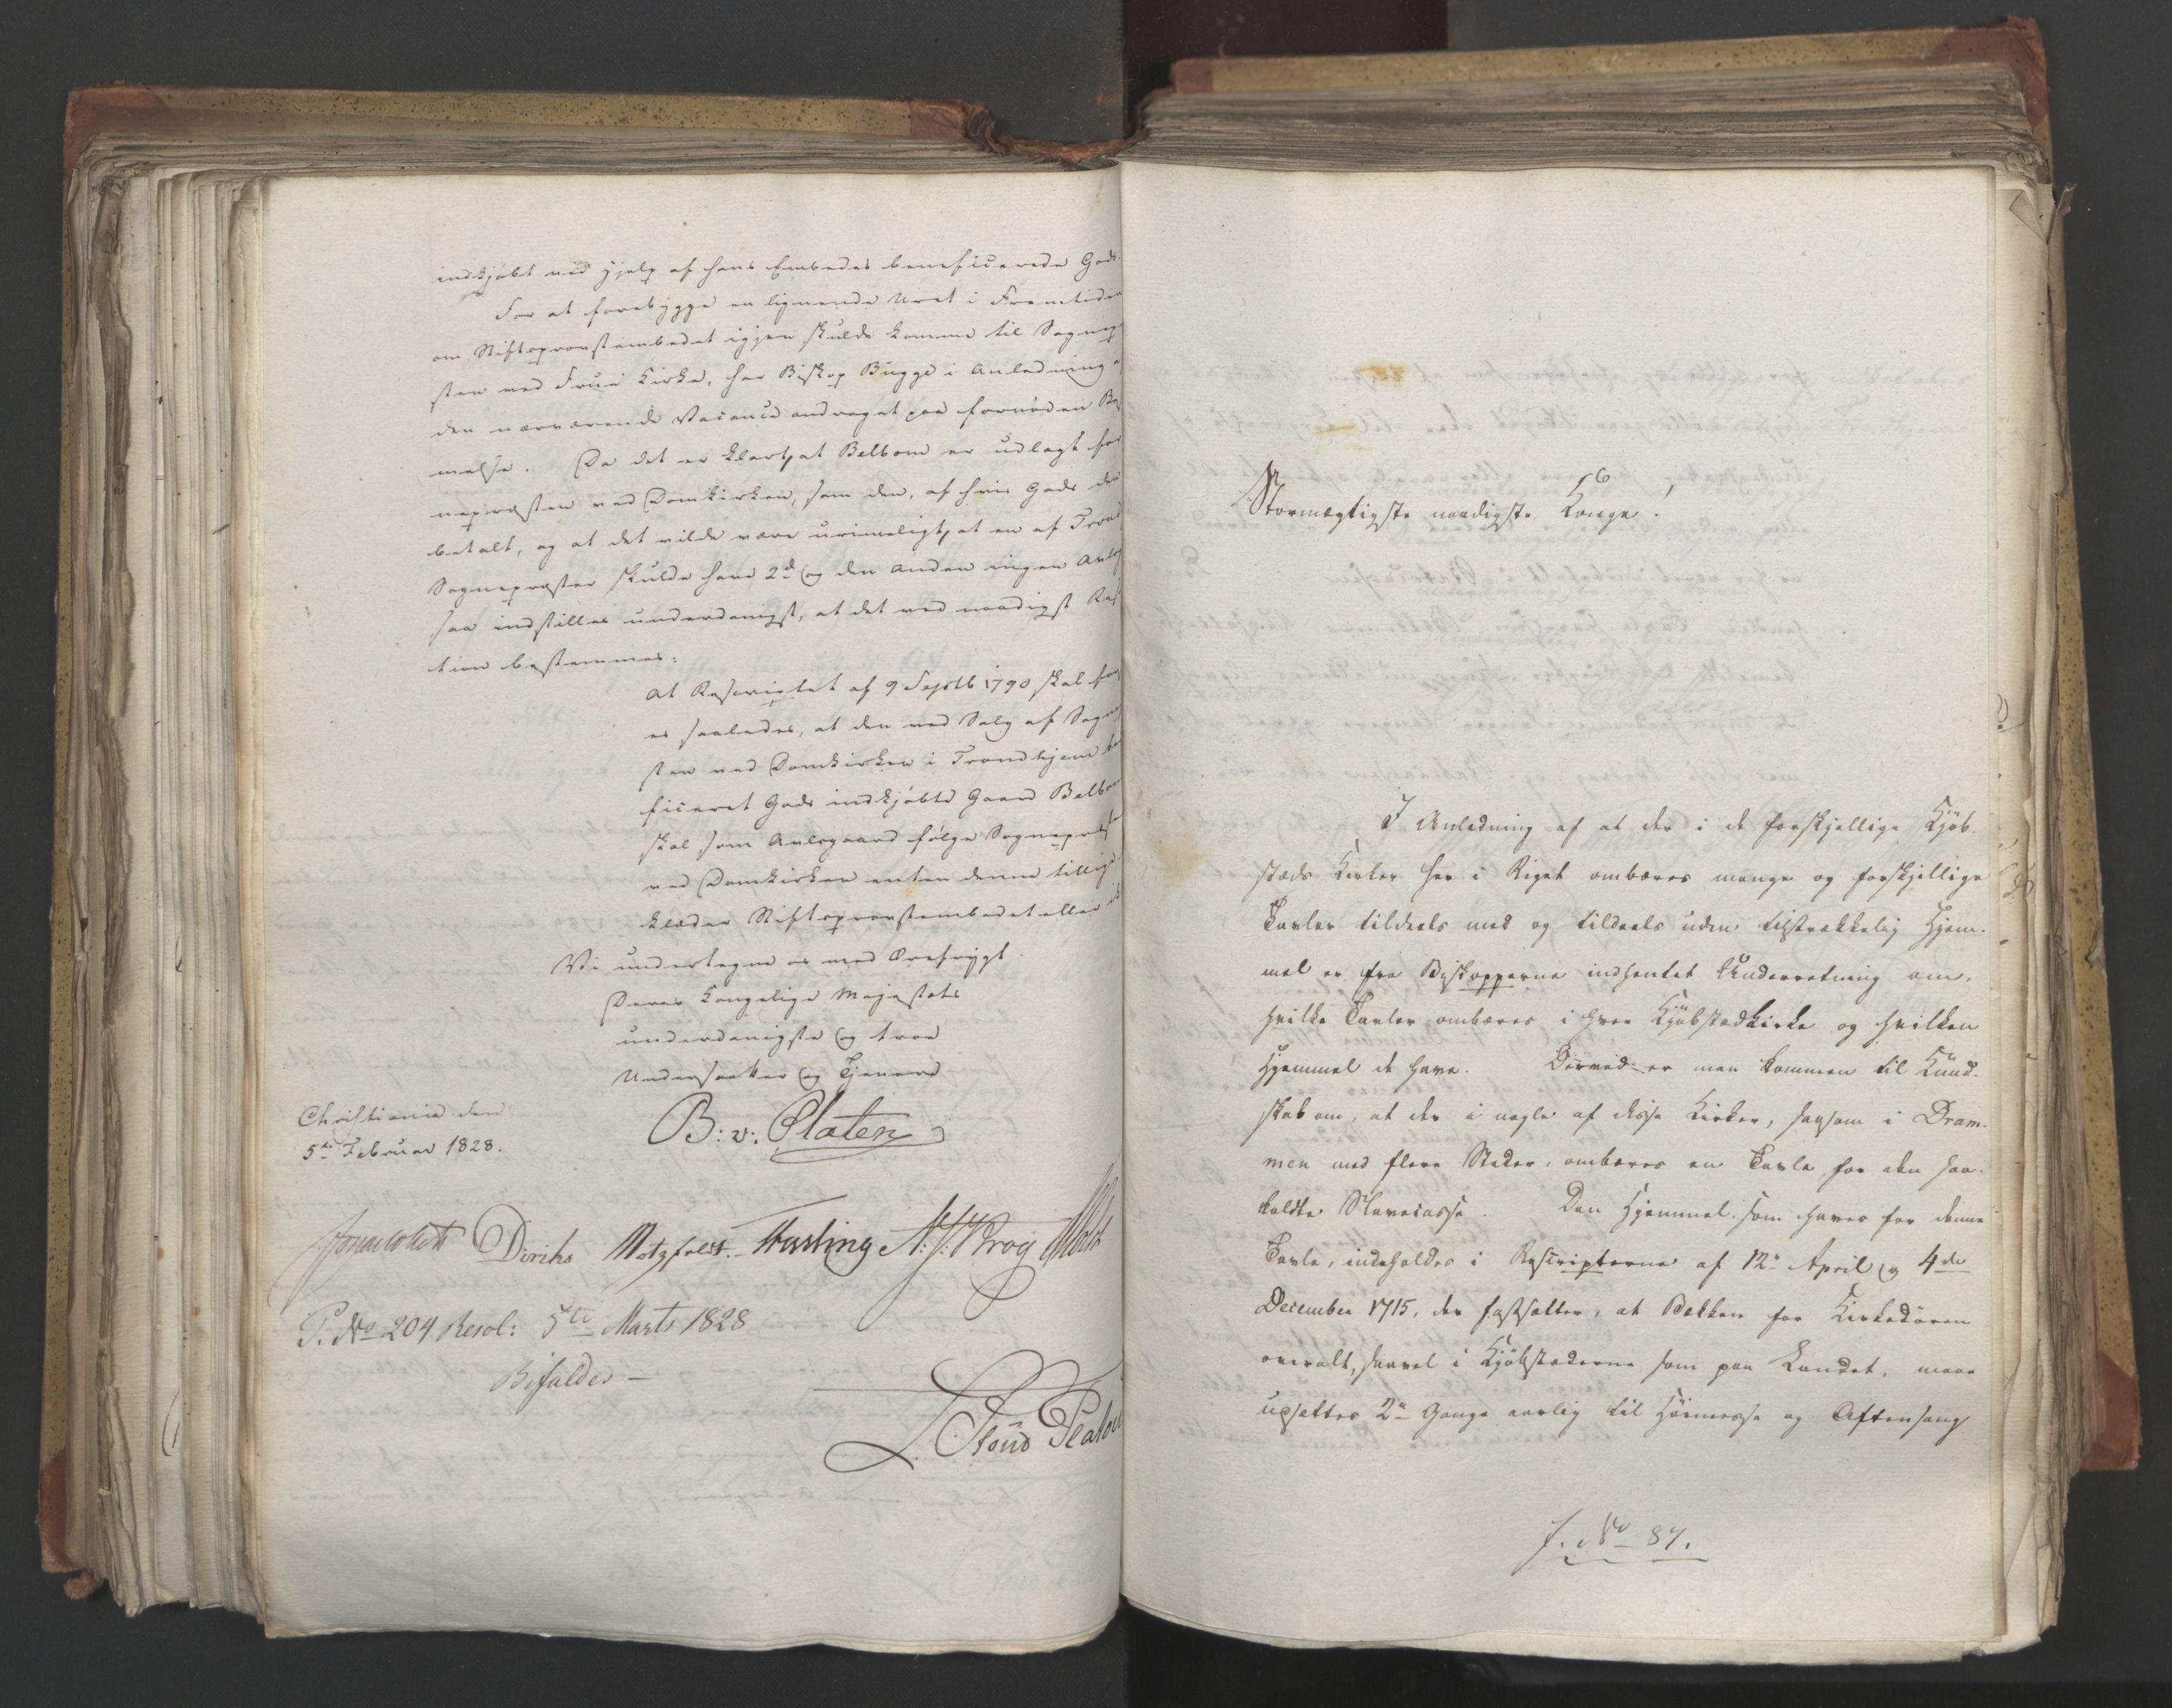 indkjøbt ved Hjelp af hans Embedes beneficerede Gods.
For at forebygge en lignende Uret i Fremtiden
om Stiftsprovstembedet igjen skulde komme til Sognep
sten ved Frue Kirke, har Biskop Bugge i Anledning a
den nærværende Vacance andraget paa fornøden Be
melse. Da det er klart, at Belbom er udlagt for
nepræsten ved Domkirken, som den, af hvis Gods den
betalt, og at det vilde være urimeligt, at en af Trond
Sognepræster skulde have 2de og den anden ingen Avls
saa indstilles underdanigst, at det ved naadigst Res
tion bestemmes:
At Rescriptet af 9 Septb 1790 skal for
es saaledes, at den ved Salg af Sogne
sten ved Domkirken i Trondhjem be
ficeret Gods indkjøbte Gaard Belbom
skal som Avlsgaard følge Sognepræst
ved Domkirken enten denne tillige
klæder Stiftsprovstembedet eller ik
Vi undertegne os med Ærefrygt
Deres Kongelige Majestæts
underdanigste og troe
Undersaatter og Tjenere
Christiania den
5te Februar 1828.
B: v: Platen
Diriks Motzfeldt. Fasting A: J: Krog Holst
P. No 204 Resol: 5te Marts 1828
Bifaldes —
Stormægtigste naadigste Konge!
I Anledning af at der i de forskjellige Kjøb-
stæds Kirker her i Riget ombæres mange og forskjellige
Tavler tildeels med og tildeels uden tilstrækkelig Hjem-
mel er fra Biskopperne indhentet Underretning om,
hvilke Tavler ombæres i hver Kjøbstædkirke og hvilken
Hjemmel de have. Derved er man kommen til Kund-
skab om, at der i nogle af disse Kirker, saasom i Dram-
men med flere Steder, ombæres en Tavle for den saa-
kaldte Slavecasse. Den Hjemmel, som haves for denne
Tavle, indeholdes i Rescripterne af 12te April og 4de
December 1715, der fastsætter, at Bækken for Kirkedøren
overalt, saavel i Kjøbstæderne som paa Landet, maae
udsættes 2de Gange aarlig til Høimesse og Aftensang
J. No 87.